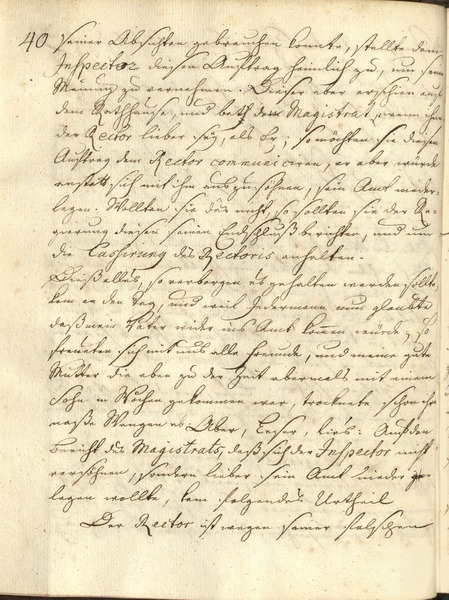 40 seiner Absichten gebrauchen konnte, stellte dem
Inspector diesen Auftrag heimlich zu, um seine
Meinung zu vernehmen. Dieser aber erschien auf
dem Rathhause, und bath den Magistrat, wenn ihm
der Rector lieber sey, als Er; so möchten sie diesen
Auftrag dem Rector communiciren, er aber würde
anstatt sich mit ihm auszusöhnen, sein Amt nieder-
legen. Wollten sie dies nicht, so sollten sie der Re-
gierung diesen seinen Entschluß berichten, und um
die Cassirung des Rectoris anhalten.
Dieß alles, so verborgen es gehalten werden sollte
kam an den Tag, und weil Jedermann nun glaubte
daß mein Vater wieder ins Amt kommen würde; So
freueten sich mit uns alle Freunde, und meine gute
Mutter die eben zu der Zeit abermals mit einem
Sohn in Wochen gekommen war, trocknete schon ihre
nasse Wangen Aber, Leser, lies: Auf den
Bericht des Magistrats, daß sich der Inspector nicht
versöhnen, sondern lieber sein Amt nieder
legen wollte, kam folgendes Urtheil
Der Rector ist wegen seiner falschen